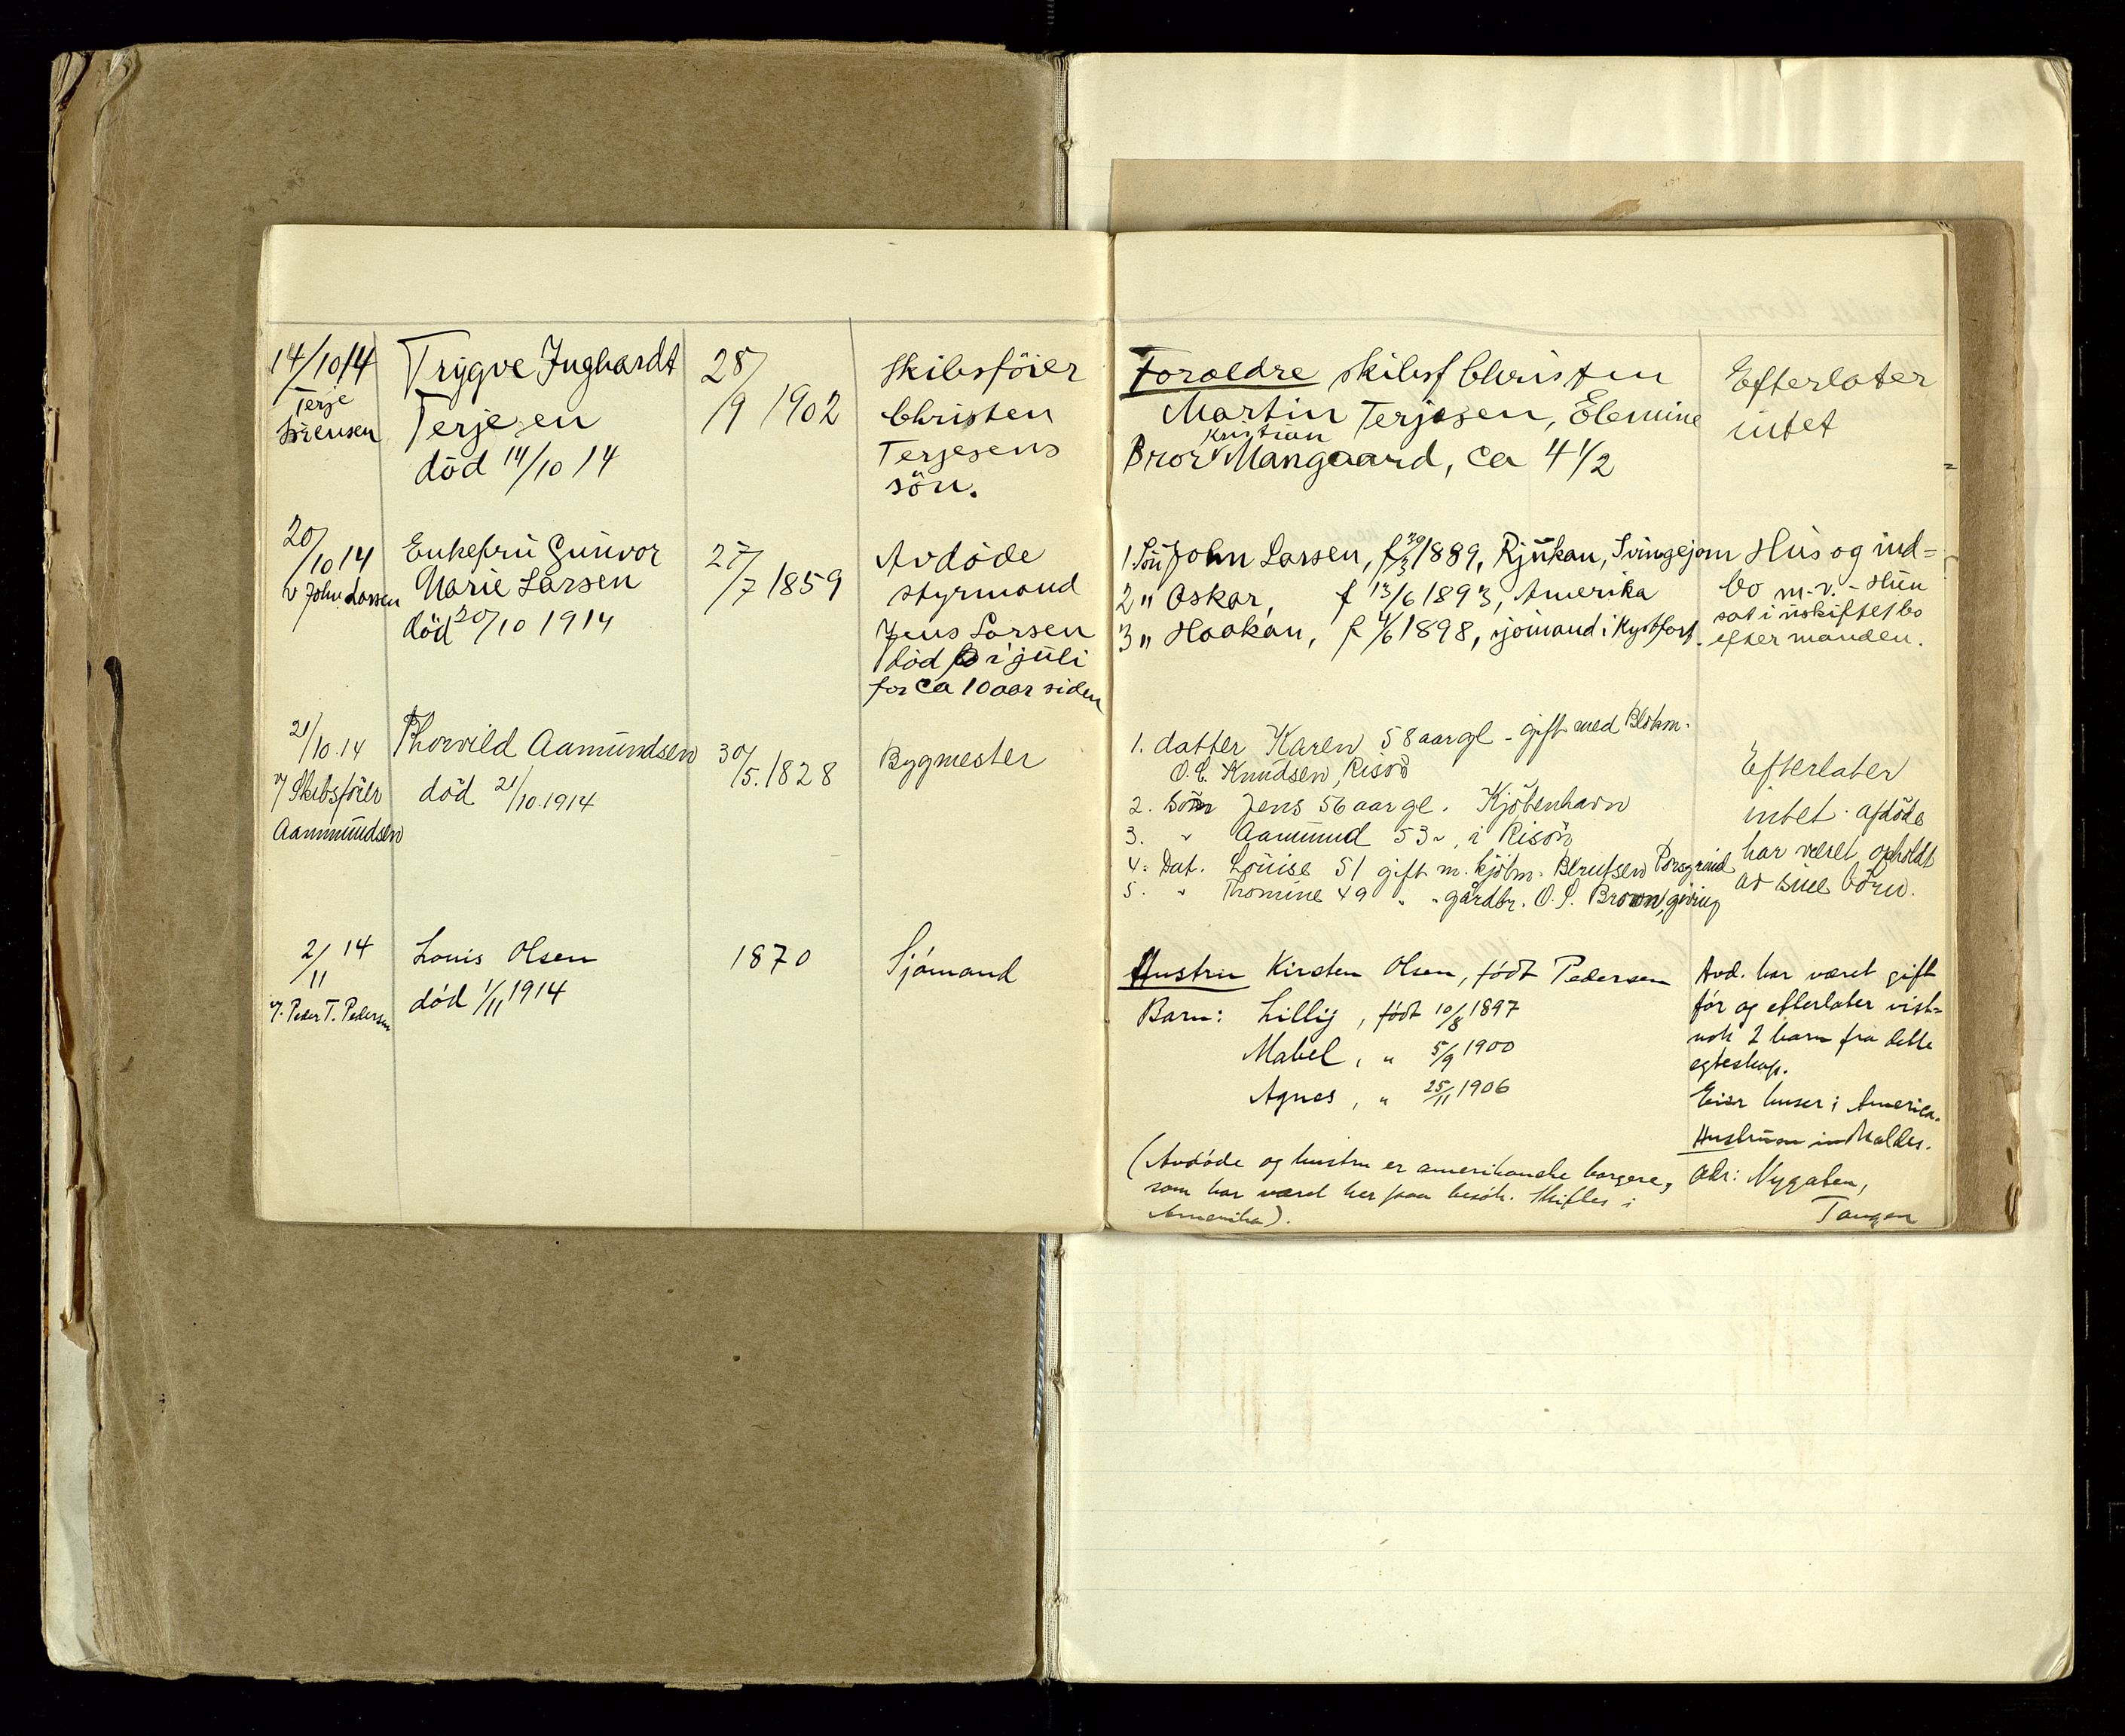 14/10 14
Terje
Sörensen
Trygve Inghardt
Terjesen
död 14/10 14
28/9 1902
Skibsförer
Christen
Terjesens
sön.
Foraeldre skibsf Christen
Martin Terjesen, Elemine
Kristian
Bror Mangaard, ca 4 1/2
Efterlater
intet
20/10 14
v John Larsen
Enkefru Gunvor
Marie Larsen
död 20/10 1914
27/7 1859
Avdöde
styrmand
Jens Larsen
död i juli
for ca 10 aar siden
1 Sön John Larsen, f 29/3 1889, Rjukan, Svingejern
2 " Oskar, f 13/6 1893, Amerika
3 " Haakan, f 4/6 1898, sjömand i Kystfart.
Hus og ind=
bo m.v. - Hun
sat i uskiftet bo
efter manden.
21/10.14
v/ Skibsförer
Aanmundsen
Thorvild Aamundsen
död 21/10.1914
30/5.1828
Bygmester
1. datter Karen 58 aar gl - gift med Blokm.
O. C. Knudsen, Risör
2. Sön Jens 56 aar gl. Kjöbenhavn
3. " Aamund 53 " , i Risör
4. Dat. Louise 51 gift m. kjöbm. Berntsen Porsgrund
5. " Thomine 49 " " gårdbr. O. S. Brown,
Efterlater
intet. afdöde
har vaeret opholdt
av sine börn.
2/11 14
v. Peder T. Pedersen
Louis Olsen
död 1/11 1914
1870
Sjömand
Hustru Kirsten Olsen, född Pedersen
Barn: Lillig, född 10/8 1897
Mabel, " 5/9 1900
Agnes, " 25/11 1906
(Avdöde og hustru er amerikanske borgere,
som har været her paa besök. Skiftes i
Amerika).
Avd. har været gift
för og efterlater vist=
nok 2 barn fra dette
egteskap.
Eier huser i America.
Hustruen indkaldes.
adr: Nygaten,
Tangen